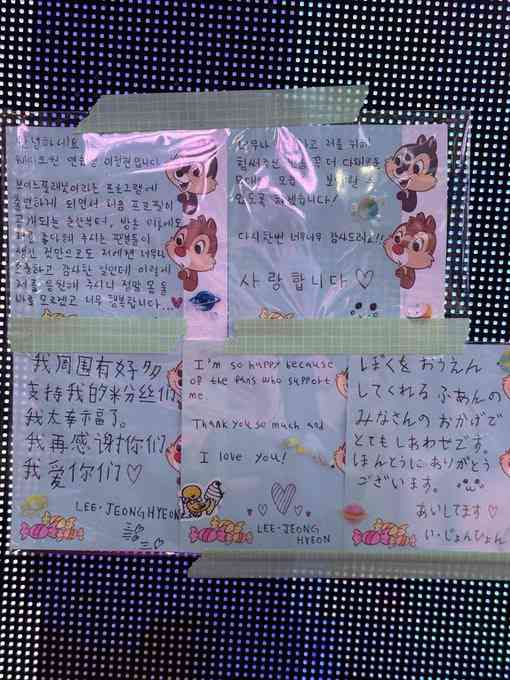 안녕하세요
웨이크원 연습생 이정현입니다
보이즈플래닛이라는 프로그램에
출연하게 되면서 처음 프로필이
공개되는 순간부터, 방송 이후에도
저를 좋아해 주시는 팬분들이
생긴 것만으로도 저에겐 너무나
소중하고 감사한 일인데 이렇게
저를 응원해 주시니 정말 몸 둘
바를 모르겠고 너무 행복합니다...♥
너무나 하고 저를 위해
힘써주신 만큼 꼭 더 다채로운
모습
있도록 하겠습니다!
다시 한번 너무너무 감사드려요!!
사랑합니다♡
我周围有好多
支持我的粉丝们
我太幸福了。
我再感谢你们
我爱你们♡
LEE·JEONGHYEON
I'm so happy because
of the fans who support
me
Thank you so much and
I love you!
LEE·JEONG
HYEON
ぼくを おうえん
してくれる ふぁんの
みなさんの おかげで
とても しあわせです。
ほんとうに ありがとう
ございます。
あいしてます♡
い·じょんひょん